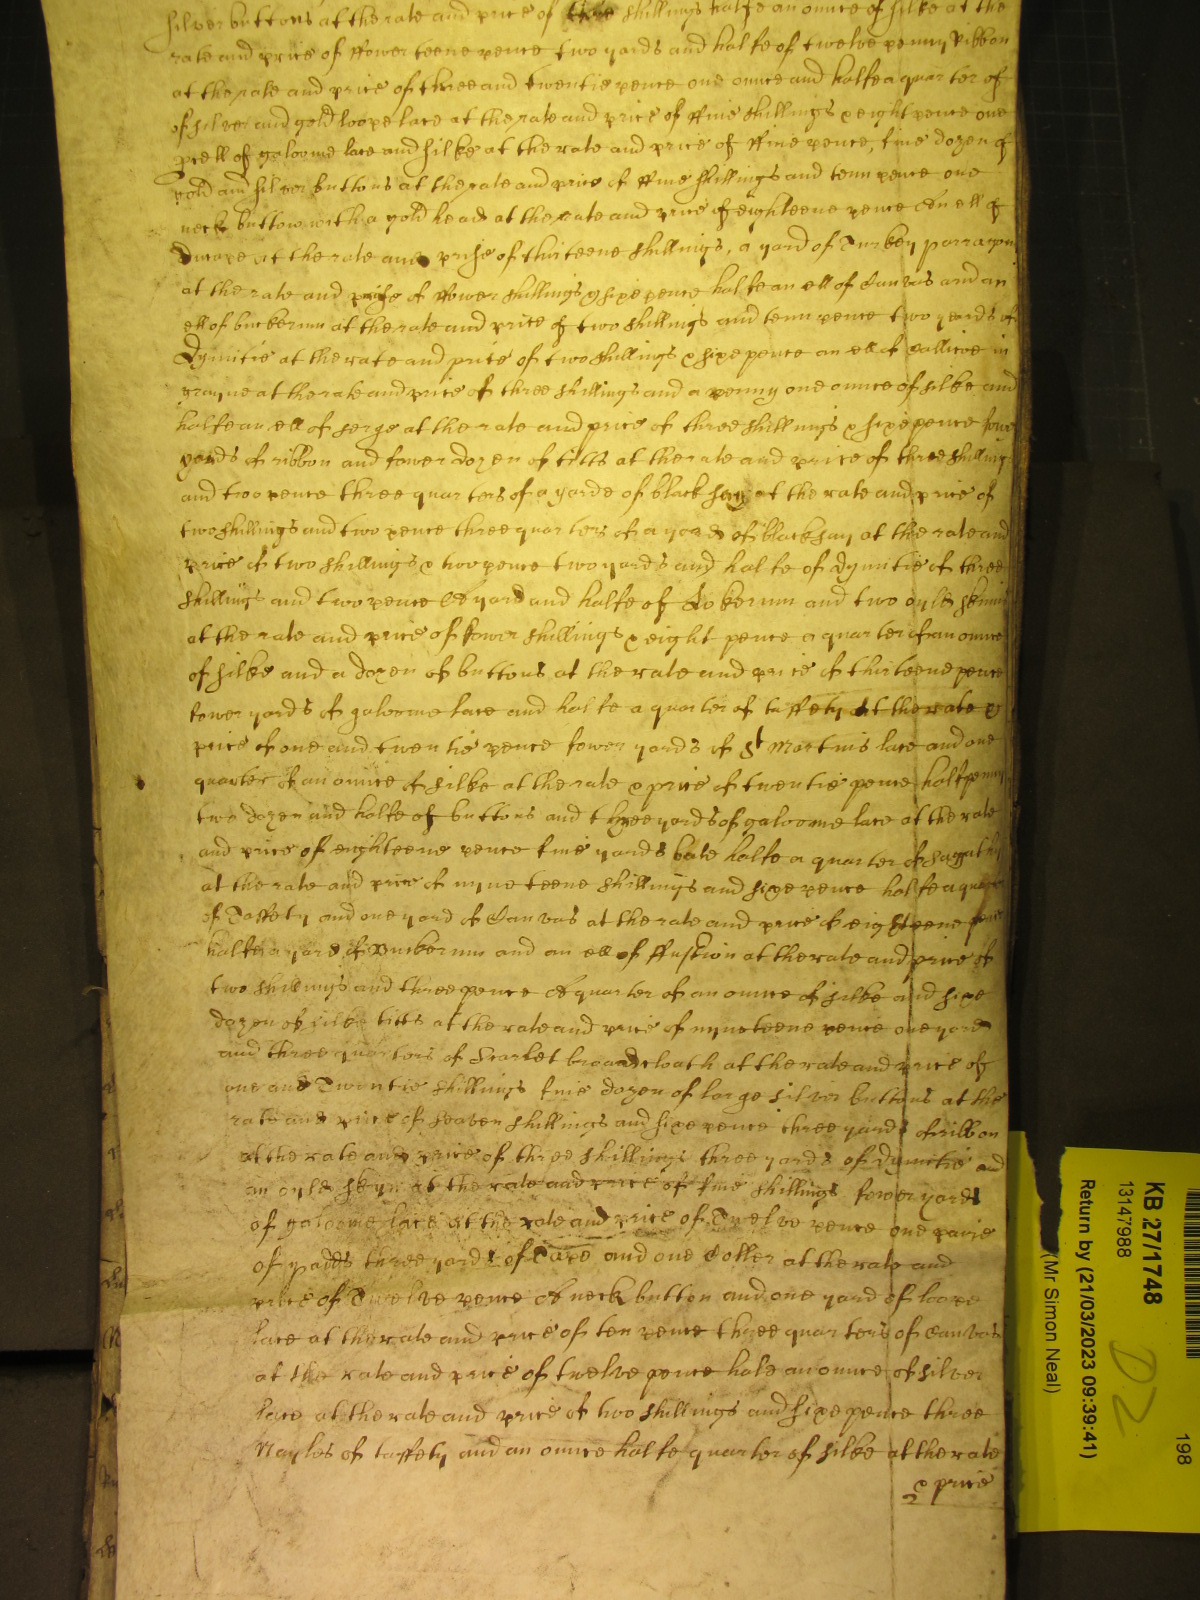 silver buttons at the rate and price of three shillings halfe an ounce of silke at the
rate and price of ffower teene pence two yards and halfe of twelve penny Ribbon
at the rate and price of three and twentie pence one ounce and halfe a quarter of
of silver and gold loope lace at the rate and price of ffive shillings & eight pence one
pcell of galoome lace and silke at the rate and price of ffive pence, five dozen of
gold and silver buttons at the rate and price of ffive shillings and tenn pence one
neck button with a gold head at the rate and price of eighteene pence An ell of
at the rate and prise of thirteene shillings, a yard of Turkey parragon
at the rate and prise of ffower shillings & sixe pence halfe an ell of Canvas and an
ell of buckerum at the rate and price of two shillings and tenn pence two yeards of
Dymitie at the rate and price of two shillings & sixe pence an ell of Callicoe in
grayne at the rate and price of three shillings and a penny one ounce of silke and
halfe an ell of serge at the rate and price of three shillings & sixe pence fower
yards of ribbon and fower dozen of titts at the rate and price of three shillings
and two pence three quarters of a yarde of black say at the rate and price of
two shillings and two pence three quarters of a yard of black say at the rate and
price of two shillings & two pence two yards and halfe of dymitie of three
shillings and two pence A yard and halfe of and two oyled skinns
at the rate and price of fower shillings & eight pence a quarter of an ounce
of silke and a dozen of buttons at the rate and price of thirteene pence
fower yards of galoome lace and halfe a quarter of taffety at the rate &
price of one and twentie pence fower yards of St Martins lace and one
quarter of an ounce of silke at the rate & price of twentie pence halfpenny
two dozen and halfe of buttons and three yards of galoome lace at the rate
and price of eighteene pence five yards bate halfe a quarter of sagathy
at the rate and price of nyneteene shillings and sixe pence halfe a quarter
of Taffety and one yard of Canvas at the rate and price of eighteene pence
halfe a yard of Buckerum and an ell of ffustion at the rate and price of
two shillings and three pence A quarter of an ounce of silke and sixe
dozen of silke titts at the rate and price of nyneteene pence one yard
and three quarters of Scarlet broadcloath at the rate and price of
one and Twentie shillings five dozen of large silver buttons at the
rate and price of seaven shillings and sixe pence three yards of ribbon
at the rate and price of three shillings three yards of dymitie and
an oyled skyn at the rate and price of five shillings fower yards
of galoome lace at the rate and price of Twelve pence one paire
of three yards of Tape and one Coller at the rate and
price of Twelve pence A neck button and one yard of loope
lace at the rate and price of ten pence three quarters of Canvas
at the rate and price of twelve pence halfe an ounce of silver
lace at the rate and price of two shillings and sixe pence three
Nayles of taffety and an ounce halfe quarter of silke at the rate
& price
KB 27/1748
13147988
Return by (21/03/2023 09:39:41)
(Mr Simon Neal)
198
D2